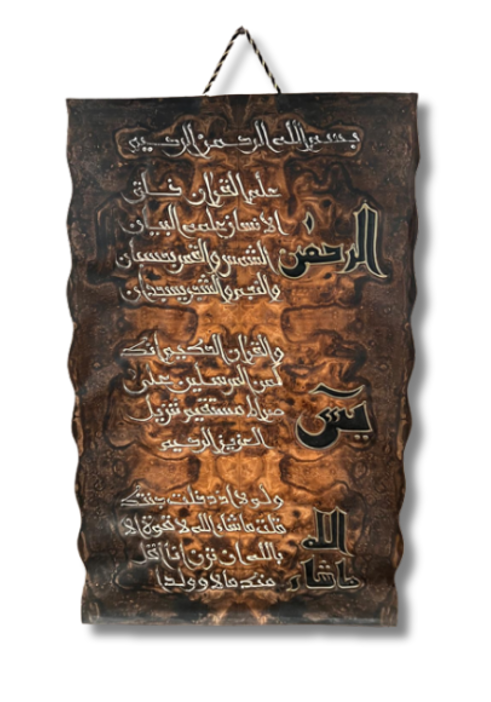 بسم الله الرحمن الرحيم
الرحمن
علم القرآن خلق
الانسان علمه البيان
الشمس والقمر بحسبان
والنجم والشجر يسجدان
يس
والقرآن الحكيم انك
لمن المرسلين على
صراط مستقيم تنزيل
العزيز الرحيم
ما شاء الله
ولولا اذ دخلت جنتك
قلت ما شاء الله لا قوة الا
بالله ان ترن انا اقل
منك مالا وولدا